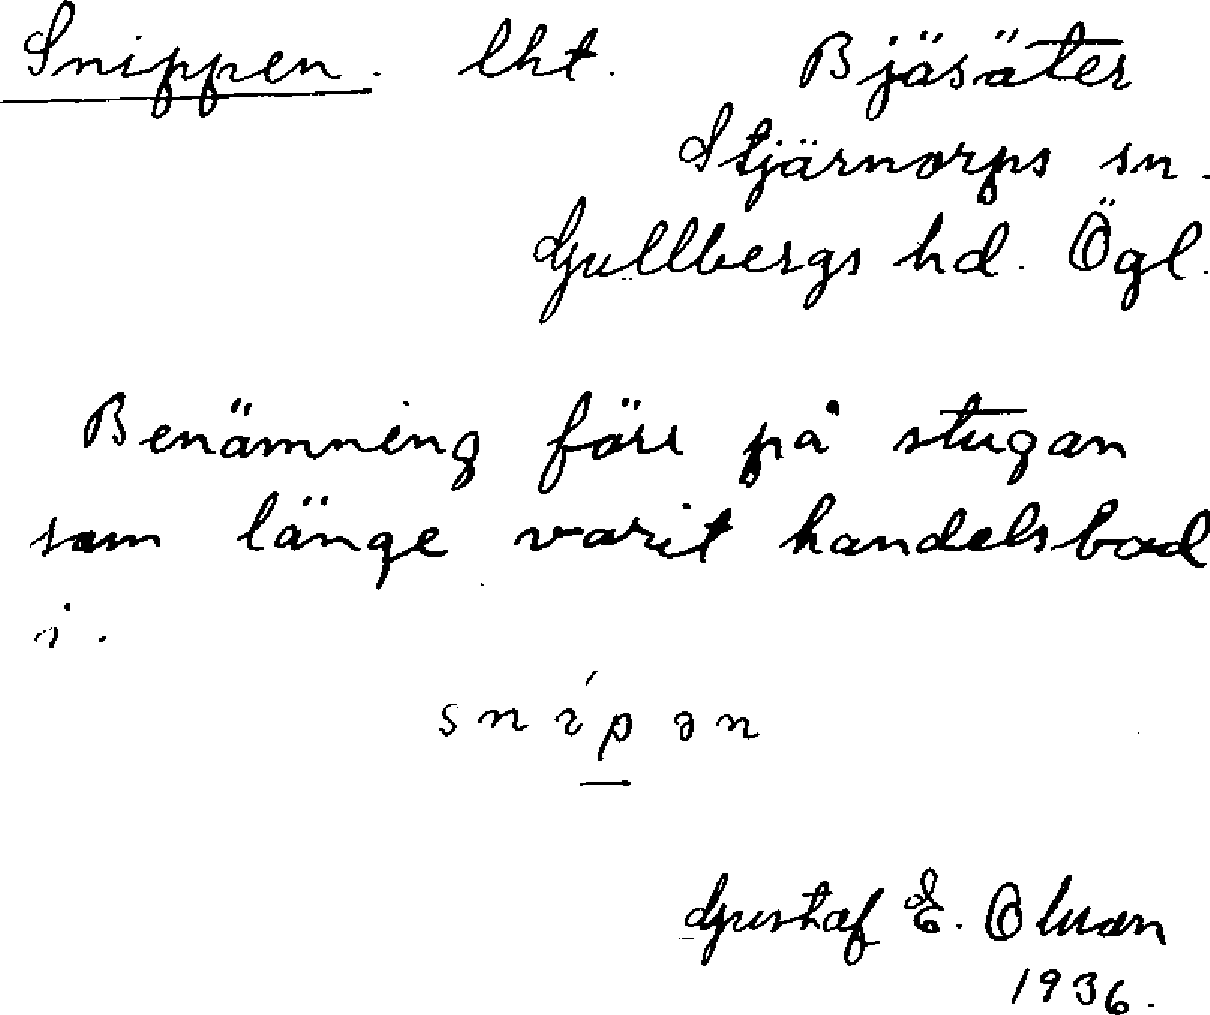 Snippen. lht. Bjäsäter
Stjärnorps sn.
Gullbergs hd. Ögl.
Benämning förr på stugan
som länge varit handelsbod
i.
snípən
Gustaf E. Olsson
1936.